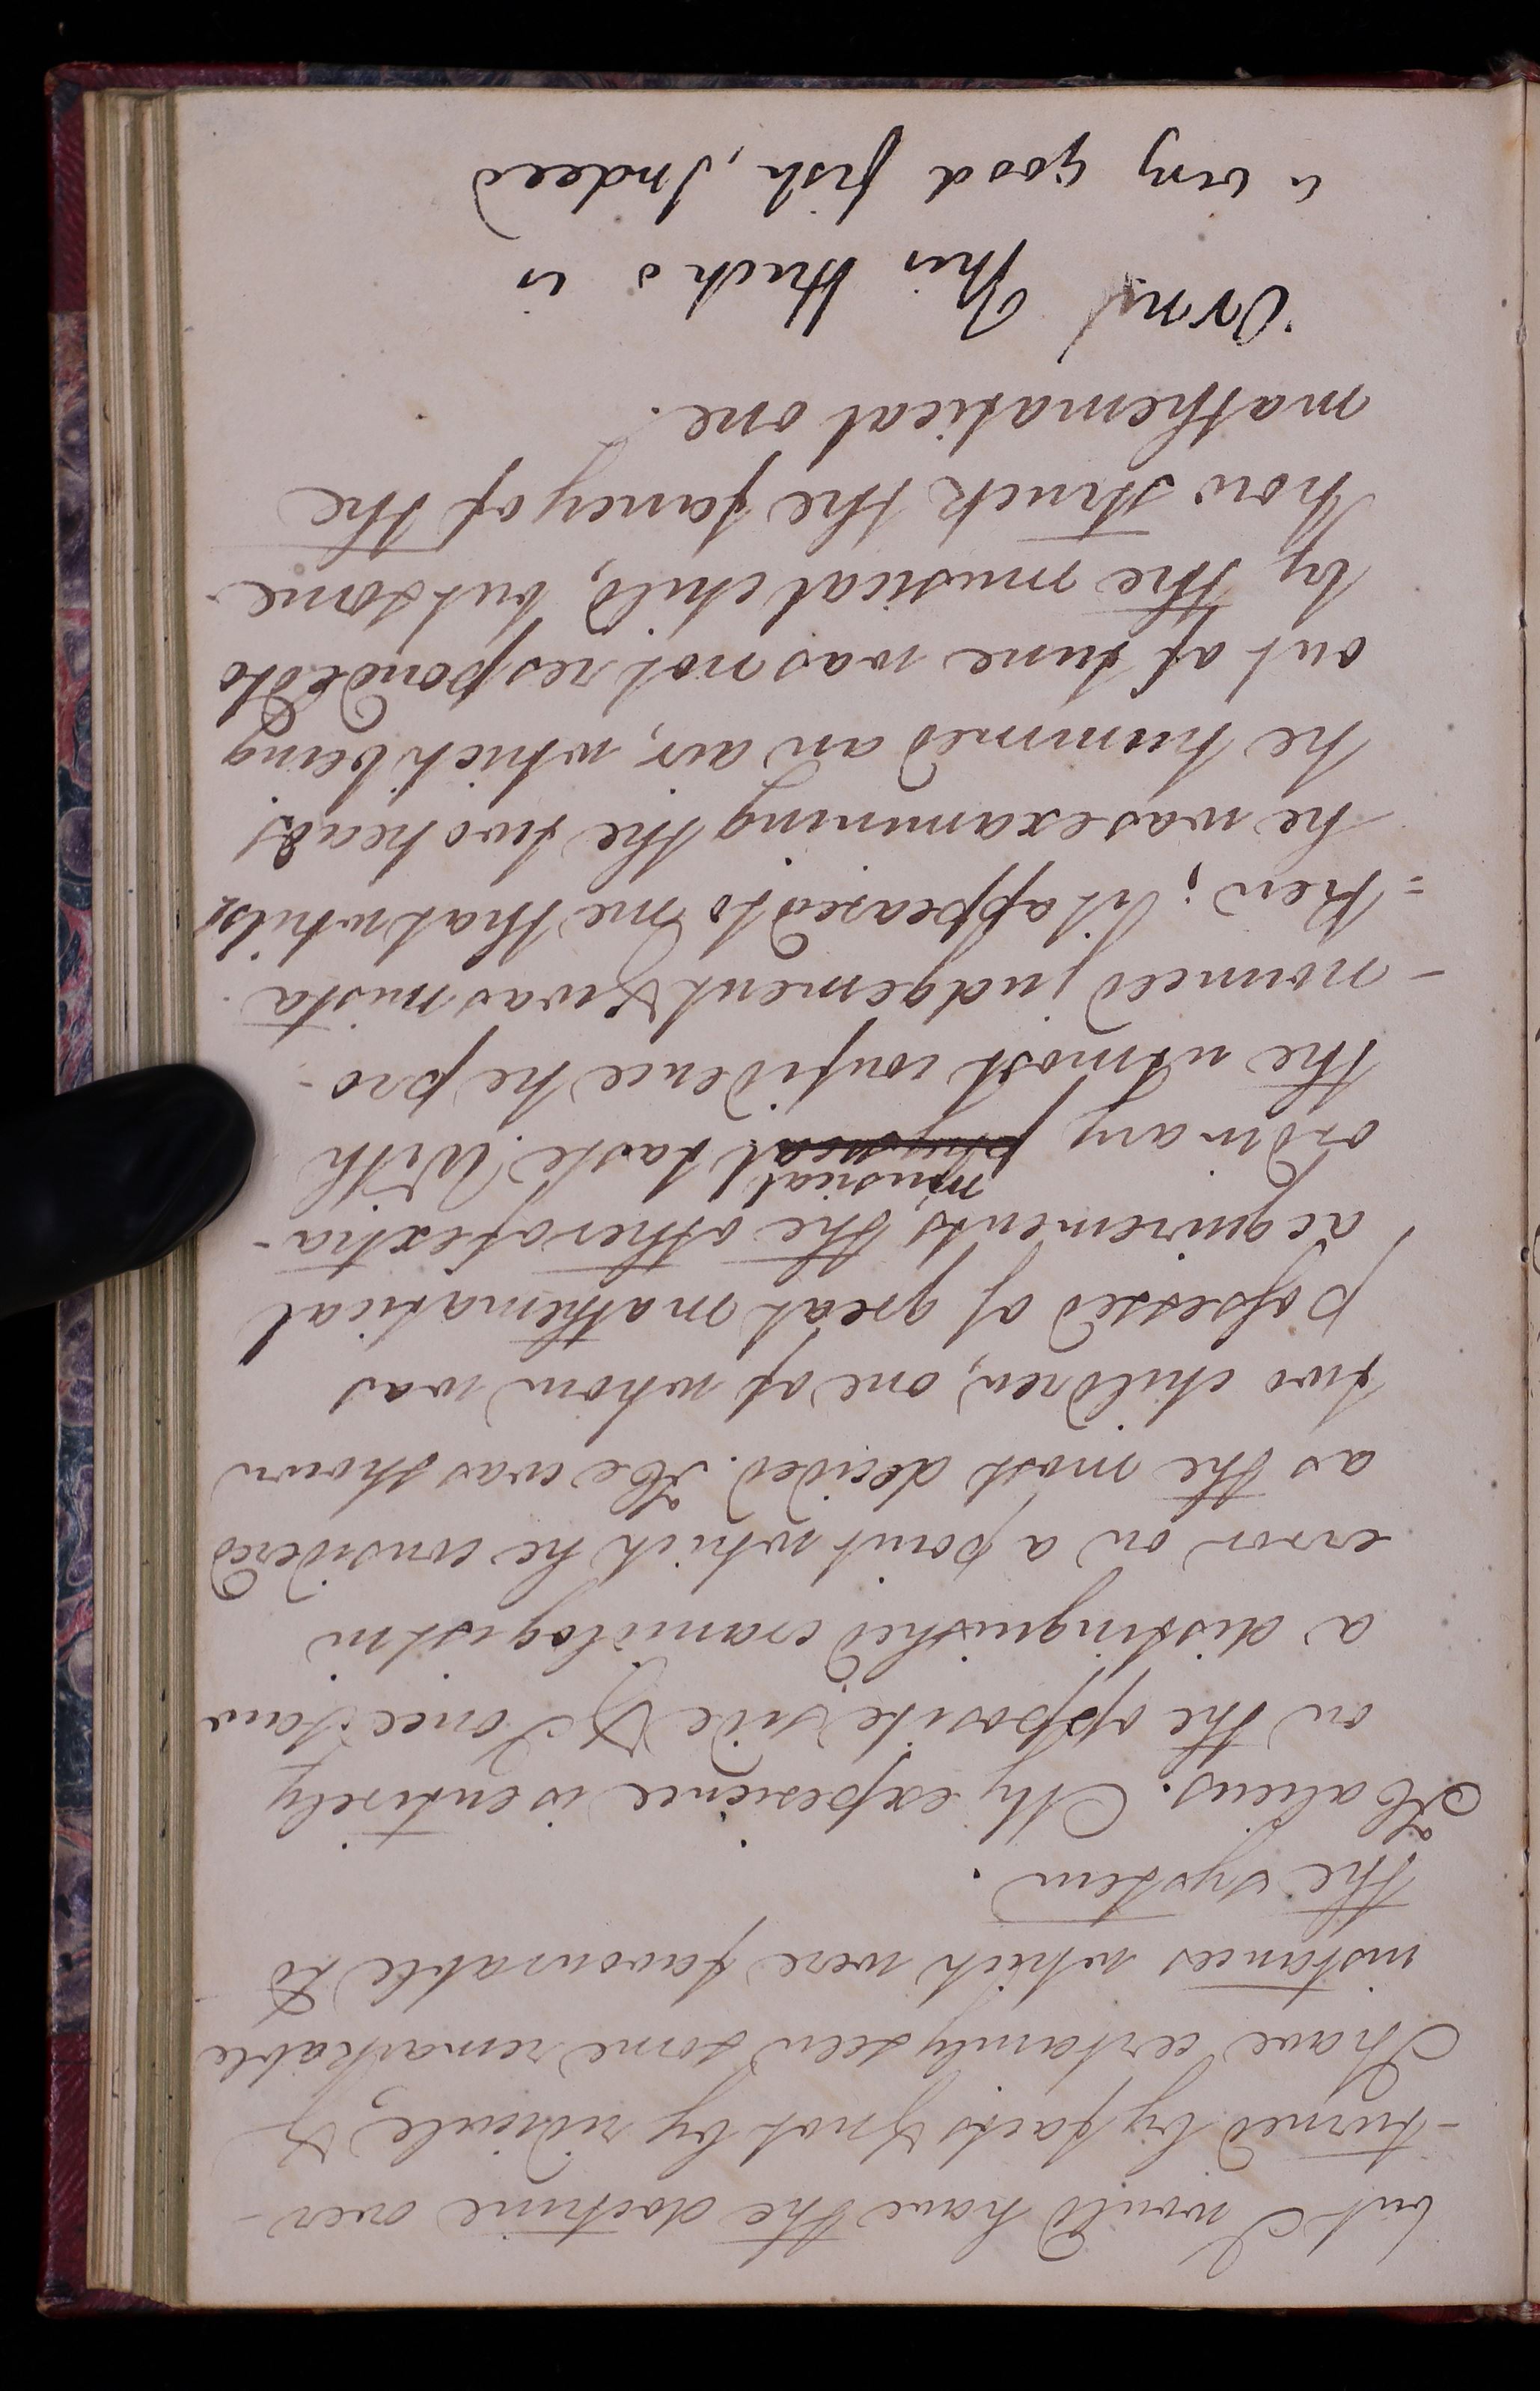 but I would have the doctrine over-
-turned by facts & not by ridicule &
I have certainly seen some remarkable
instances which were favourable to
the system.
Halieus. My experience is entirely
on the opposite side & I once saw
a distinguished craniologist in
error on a point which he considered
as the most decided. He was shown
two children, one of whom was
possessed of great mathematical
acquirements, the other of extra-
musical
ordinary physical taste. With
the utmost confidence he pro-
-nounced judgement & was mista
=ken; it appeared to me that whilst
he was examining the two heads
he hummed an air, which being
out of tune was not responded to
by the musical child, but some-
how struck the fancy of the
mathematical one.
Ornr This is
a very good fish, Indeed